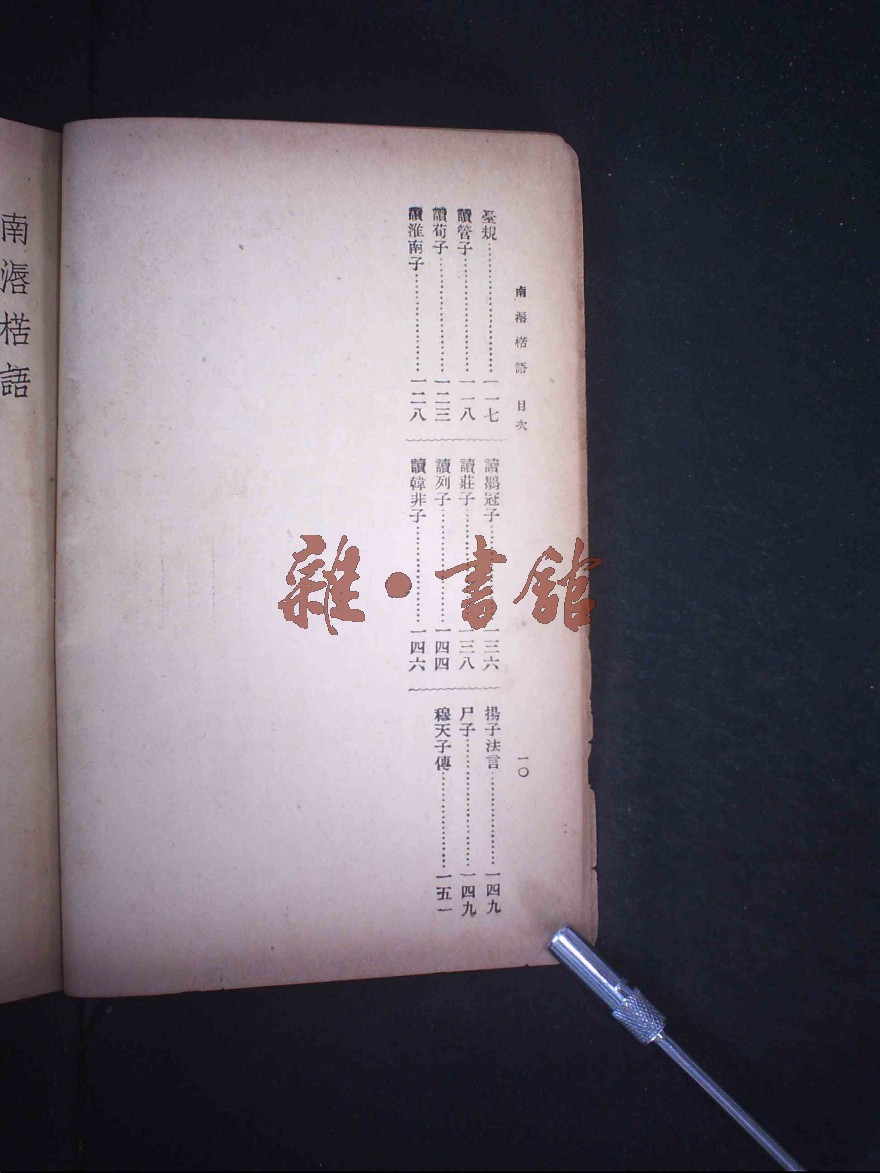 南漘楛語 目次
一〇
臺規⋯⋯⋯⋯⋯⋯⋯一一七
讀管子⋯⋯⋯⋯⋯⋯⋯一一八
讀荀子⋯⋯⋯⋯⋯⋯⋯一二三
讀淮南子⋯⋯⋯⋯⋯⋯一二八
讀鶡冠子⋯⋯⋯⋯⋯⋯一三六
讀莊子⋯⋯⋯⋯⋯⋯⋯一三八
讀列子⋯⋯⋯⋯⋯⋯⋯一四四
讀韓非子⋯⋯⋯⋯⋯⋯一四六
揚子法言⋯⋯⋯⋯⋯⋯一四九
尸子⋯⋯⋯⋯⋯⋯⋯⋯一四九
穆天子傳⋯⋯⋯⋯⋯⋯一五一
雜·書館
南漘楛語